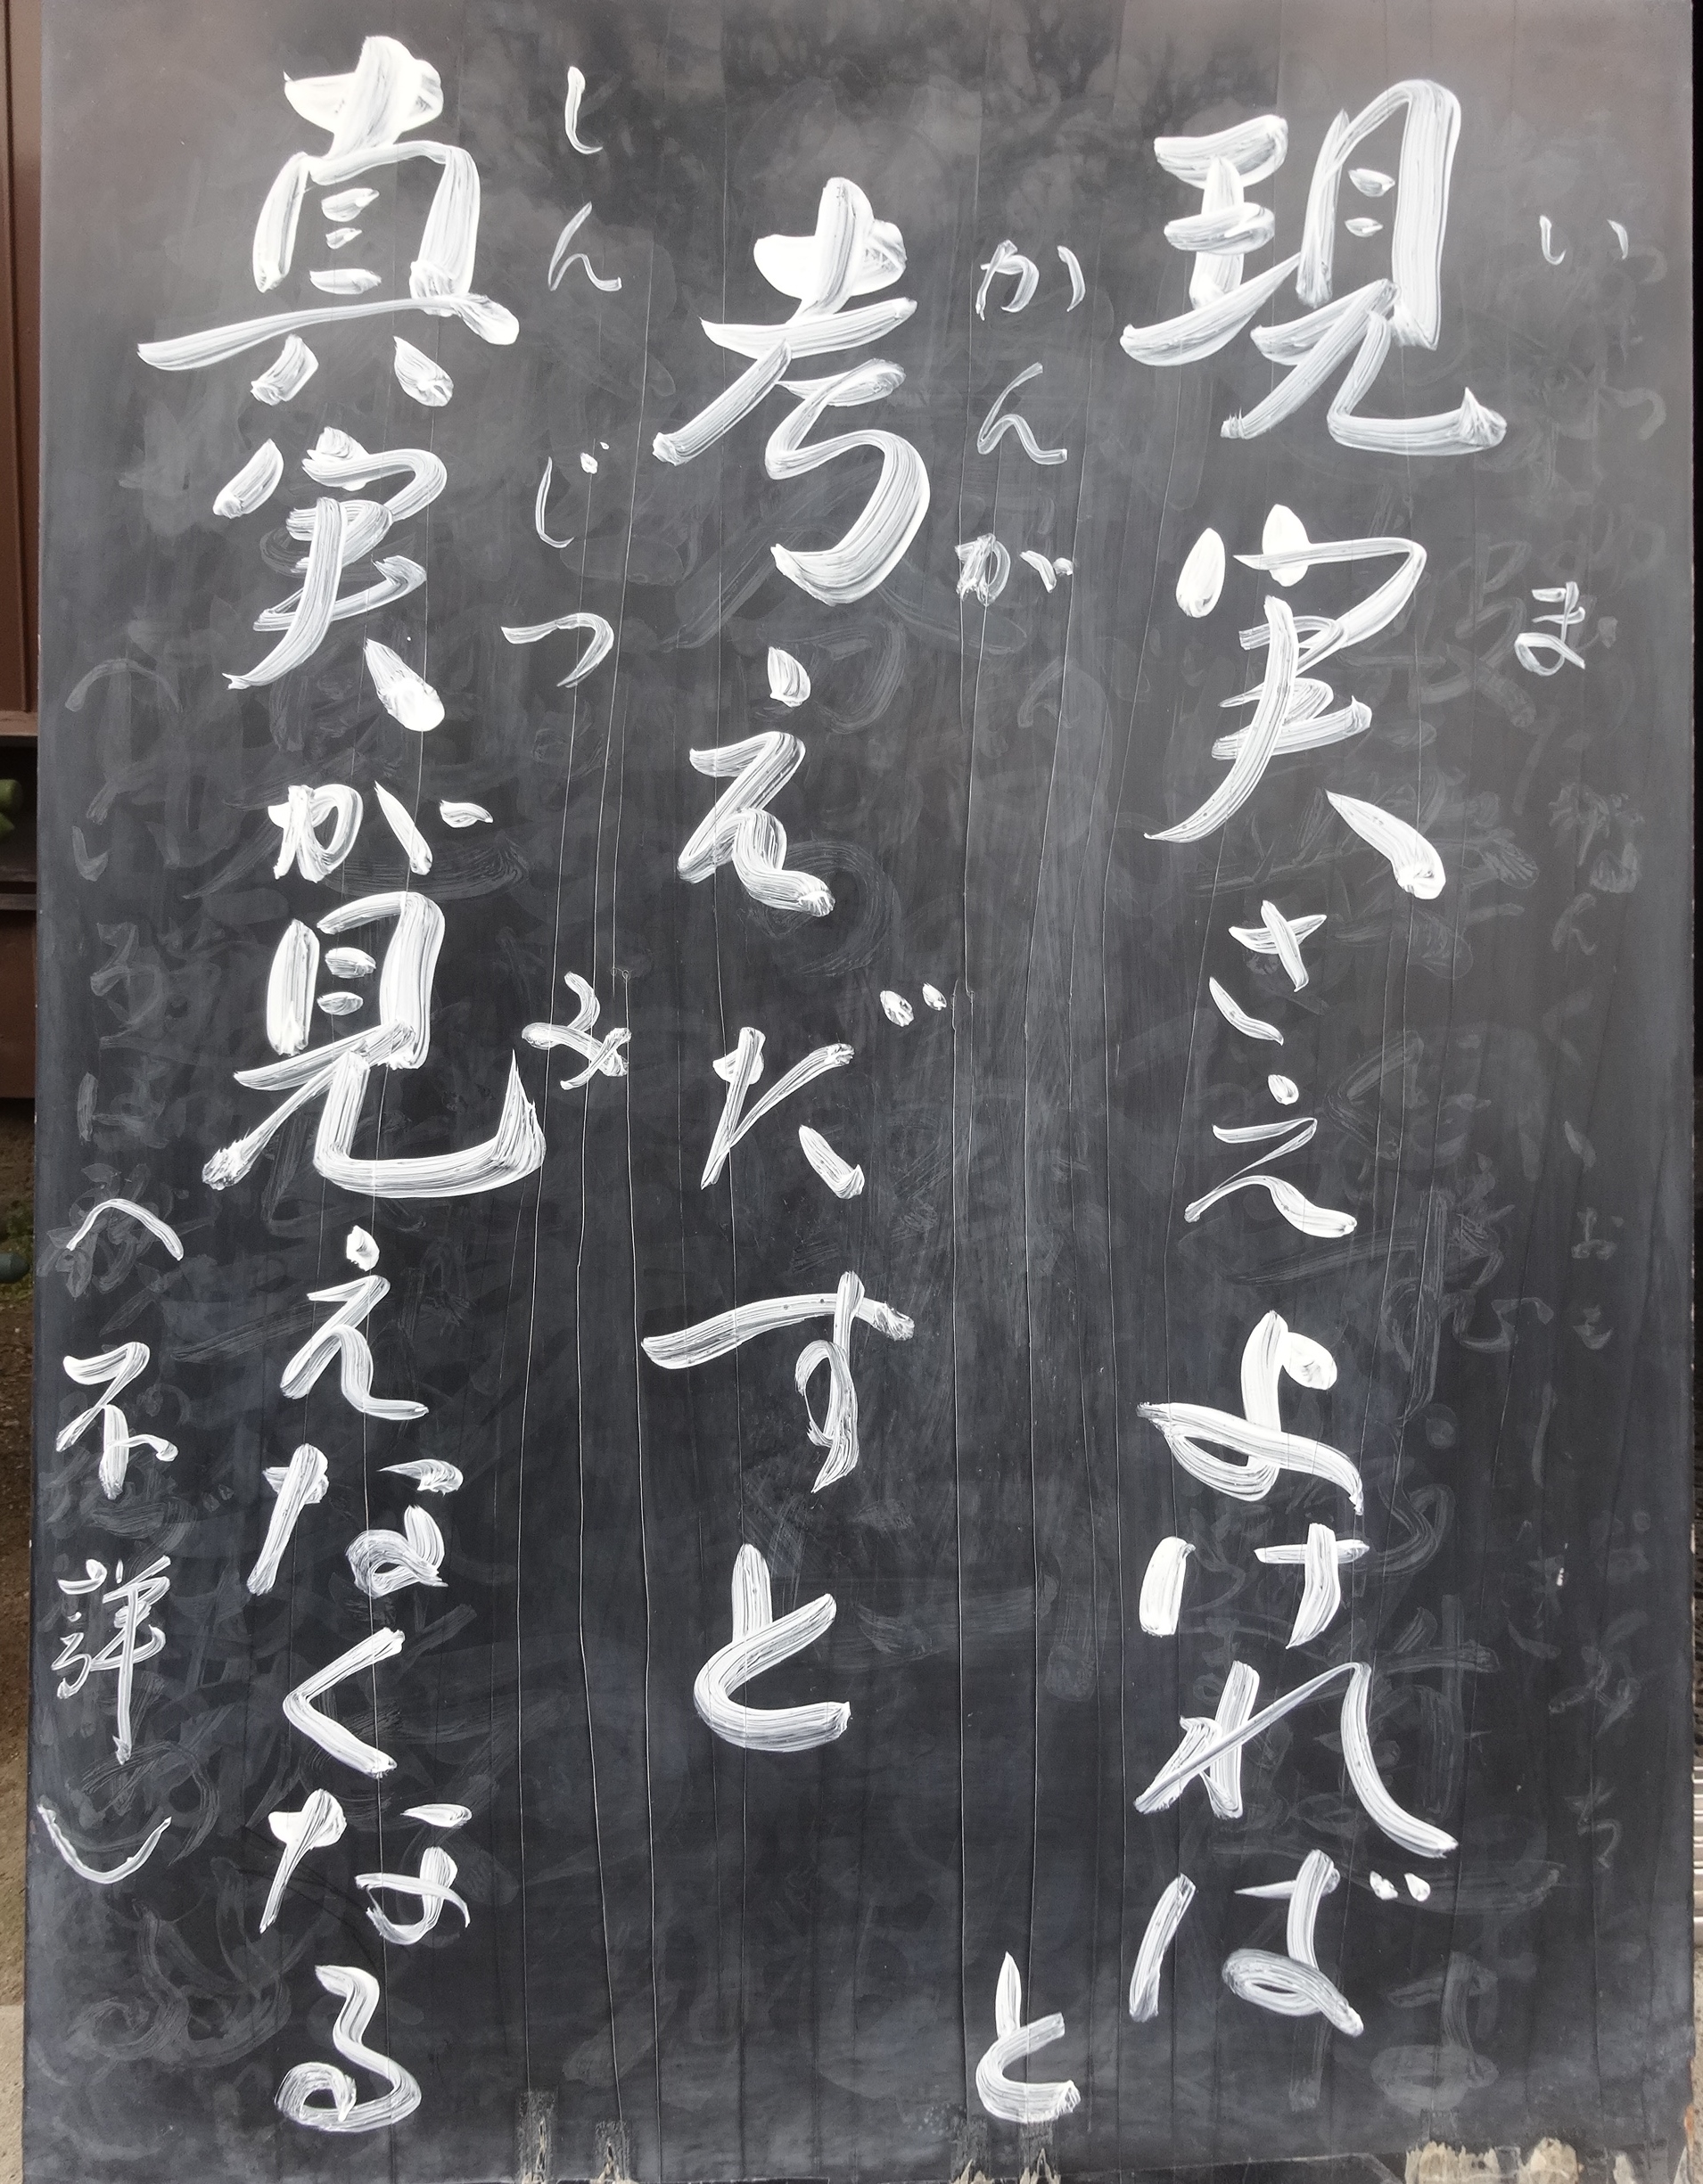 現実さえよければ
いま
と
考えだすと
かんが
真実が見えなくなる
しんじつ
み
(不詳)